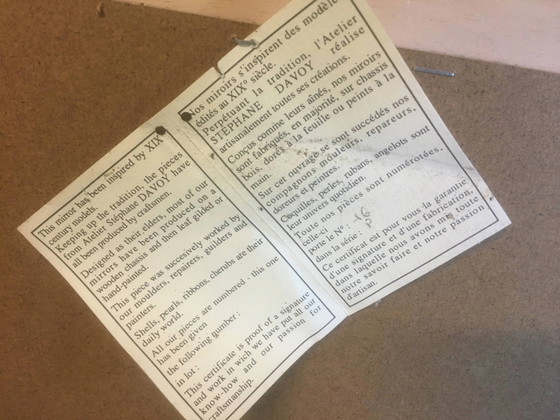 This mirror has been inspired by XIX
century models.
Keeping up the tradition, the pieces
from Atelier Stéphane DAVOY have
all been produced by crafsmen.
Designed as their elders, most of our
mirrors have been produced on a
wooden chassis and then leaf gilded or
hand-painted.
This piece was succesively worked by
our moulders, repairers, guilders and
painters.
Shells, pearls, ribbons, cherubs are their
daily world.
All our pieces are numbered - this one
has been given
the following gumber :
in lot :
This certificate is proof of a signature
and work in wich we have put all our
know-how and our passion for
craftsmanship.
Nos miroirs s'inspirent des modèle
édités au XIX° siècle.
Perpétuant la tradition, l'Atelier
STÉPHANE DAVOY réalise
artisanalement toutes ses créations.
Conçus comme leurs aînés, nos miroirs
sont fabriqués, en majorité, sur chassis
bois, dorés à la feuille ou peints à la
main.
Sur cet ouvrage se sont succédés nos
compagnons mouleurs, repareurs,
doreurs et peintres.
Coquilles, perles, rubans, angelots sont
leur univers quotidien.
Toute nos pièces sont numérotées,
celle-ci
porte le N° : 16
dans la série : P
Ce certificat est pour vous la garantie
d'une signature et d'une fabrication,
dans laquelle nous avons mis toute
notre savoir faire et notre passion
d'artisan.